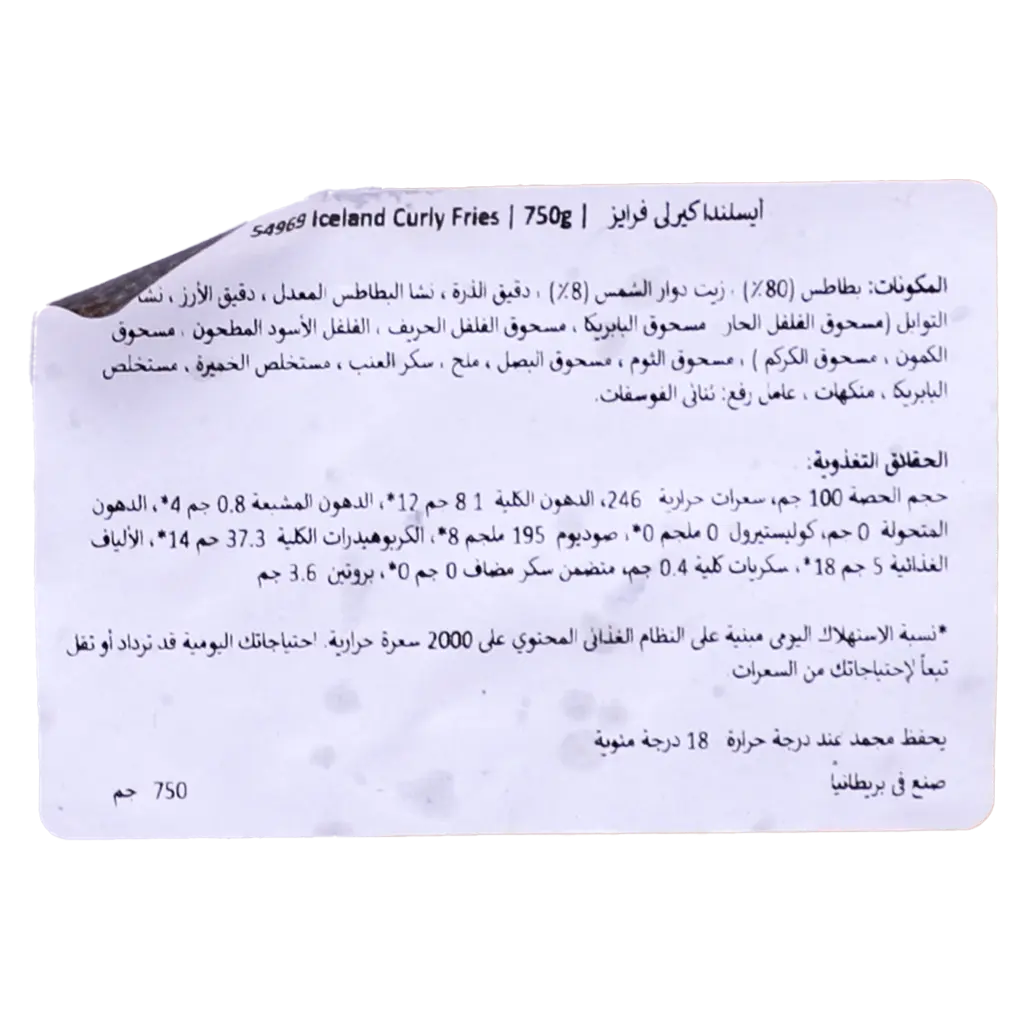 54969 Iceland Curly Fries | 750g | أيسلندا كيرلى فرايز
المكونات: بطاطس (80٪) ، زيت دوار الشمس (8٪) ، دقيق الذرة ، نشا البطاطس المعدل ، دقيق الأرز ، نشا
التوابل (مسحوق الفلفل الحار مسحوق البابريكا ، مسحوق الفلفل الحريف ، الفلفل الأسود المطحون ، مسحوق
الكمون ، مسحوق الكركم ) ، مسحوق الثوم ، مسحوق البصل ، ملح ، سكر العنب ، مستخلص الخميرة ، مستخلص
البابريكا ، منكهات ، عامل رفع: ثنائى الفوسفات.
الحقائق التغذوية:
حجم الحصة 100 جم، سعرات حرارية 246، الدهون الكلية 8 1 جم 12*، الدهون المشبعة 0.8 جم 4*، الدهون
المتحولة 0 جم، كوليستيرول 0 ملجم 0*، صوديوم 195 ملجم 8*، الكربوهيدرات الكلية 37.3 جم 14*، الألياف
الغذائية 5 جم 18*، سكريات كلية 0.4 جم، متضمن سكر مضاف 0 جم 0*، بروتين 3.6 جم
*نسبة الإستهلاك اليومى مبنية على النظام الغذائى المحتوي على 2000 سعرة حرارية. احتياجاتك اليومية قد تزداد أو تقل
تبعاً لإحتياجاتك من السعرات
يحفظ مجمد عند درجة حرارة 18 درجة مئوية
صنع فى بريطانيا
750 جم